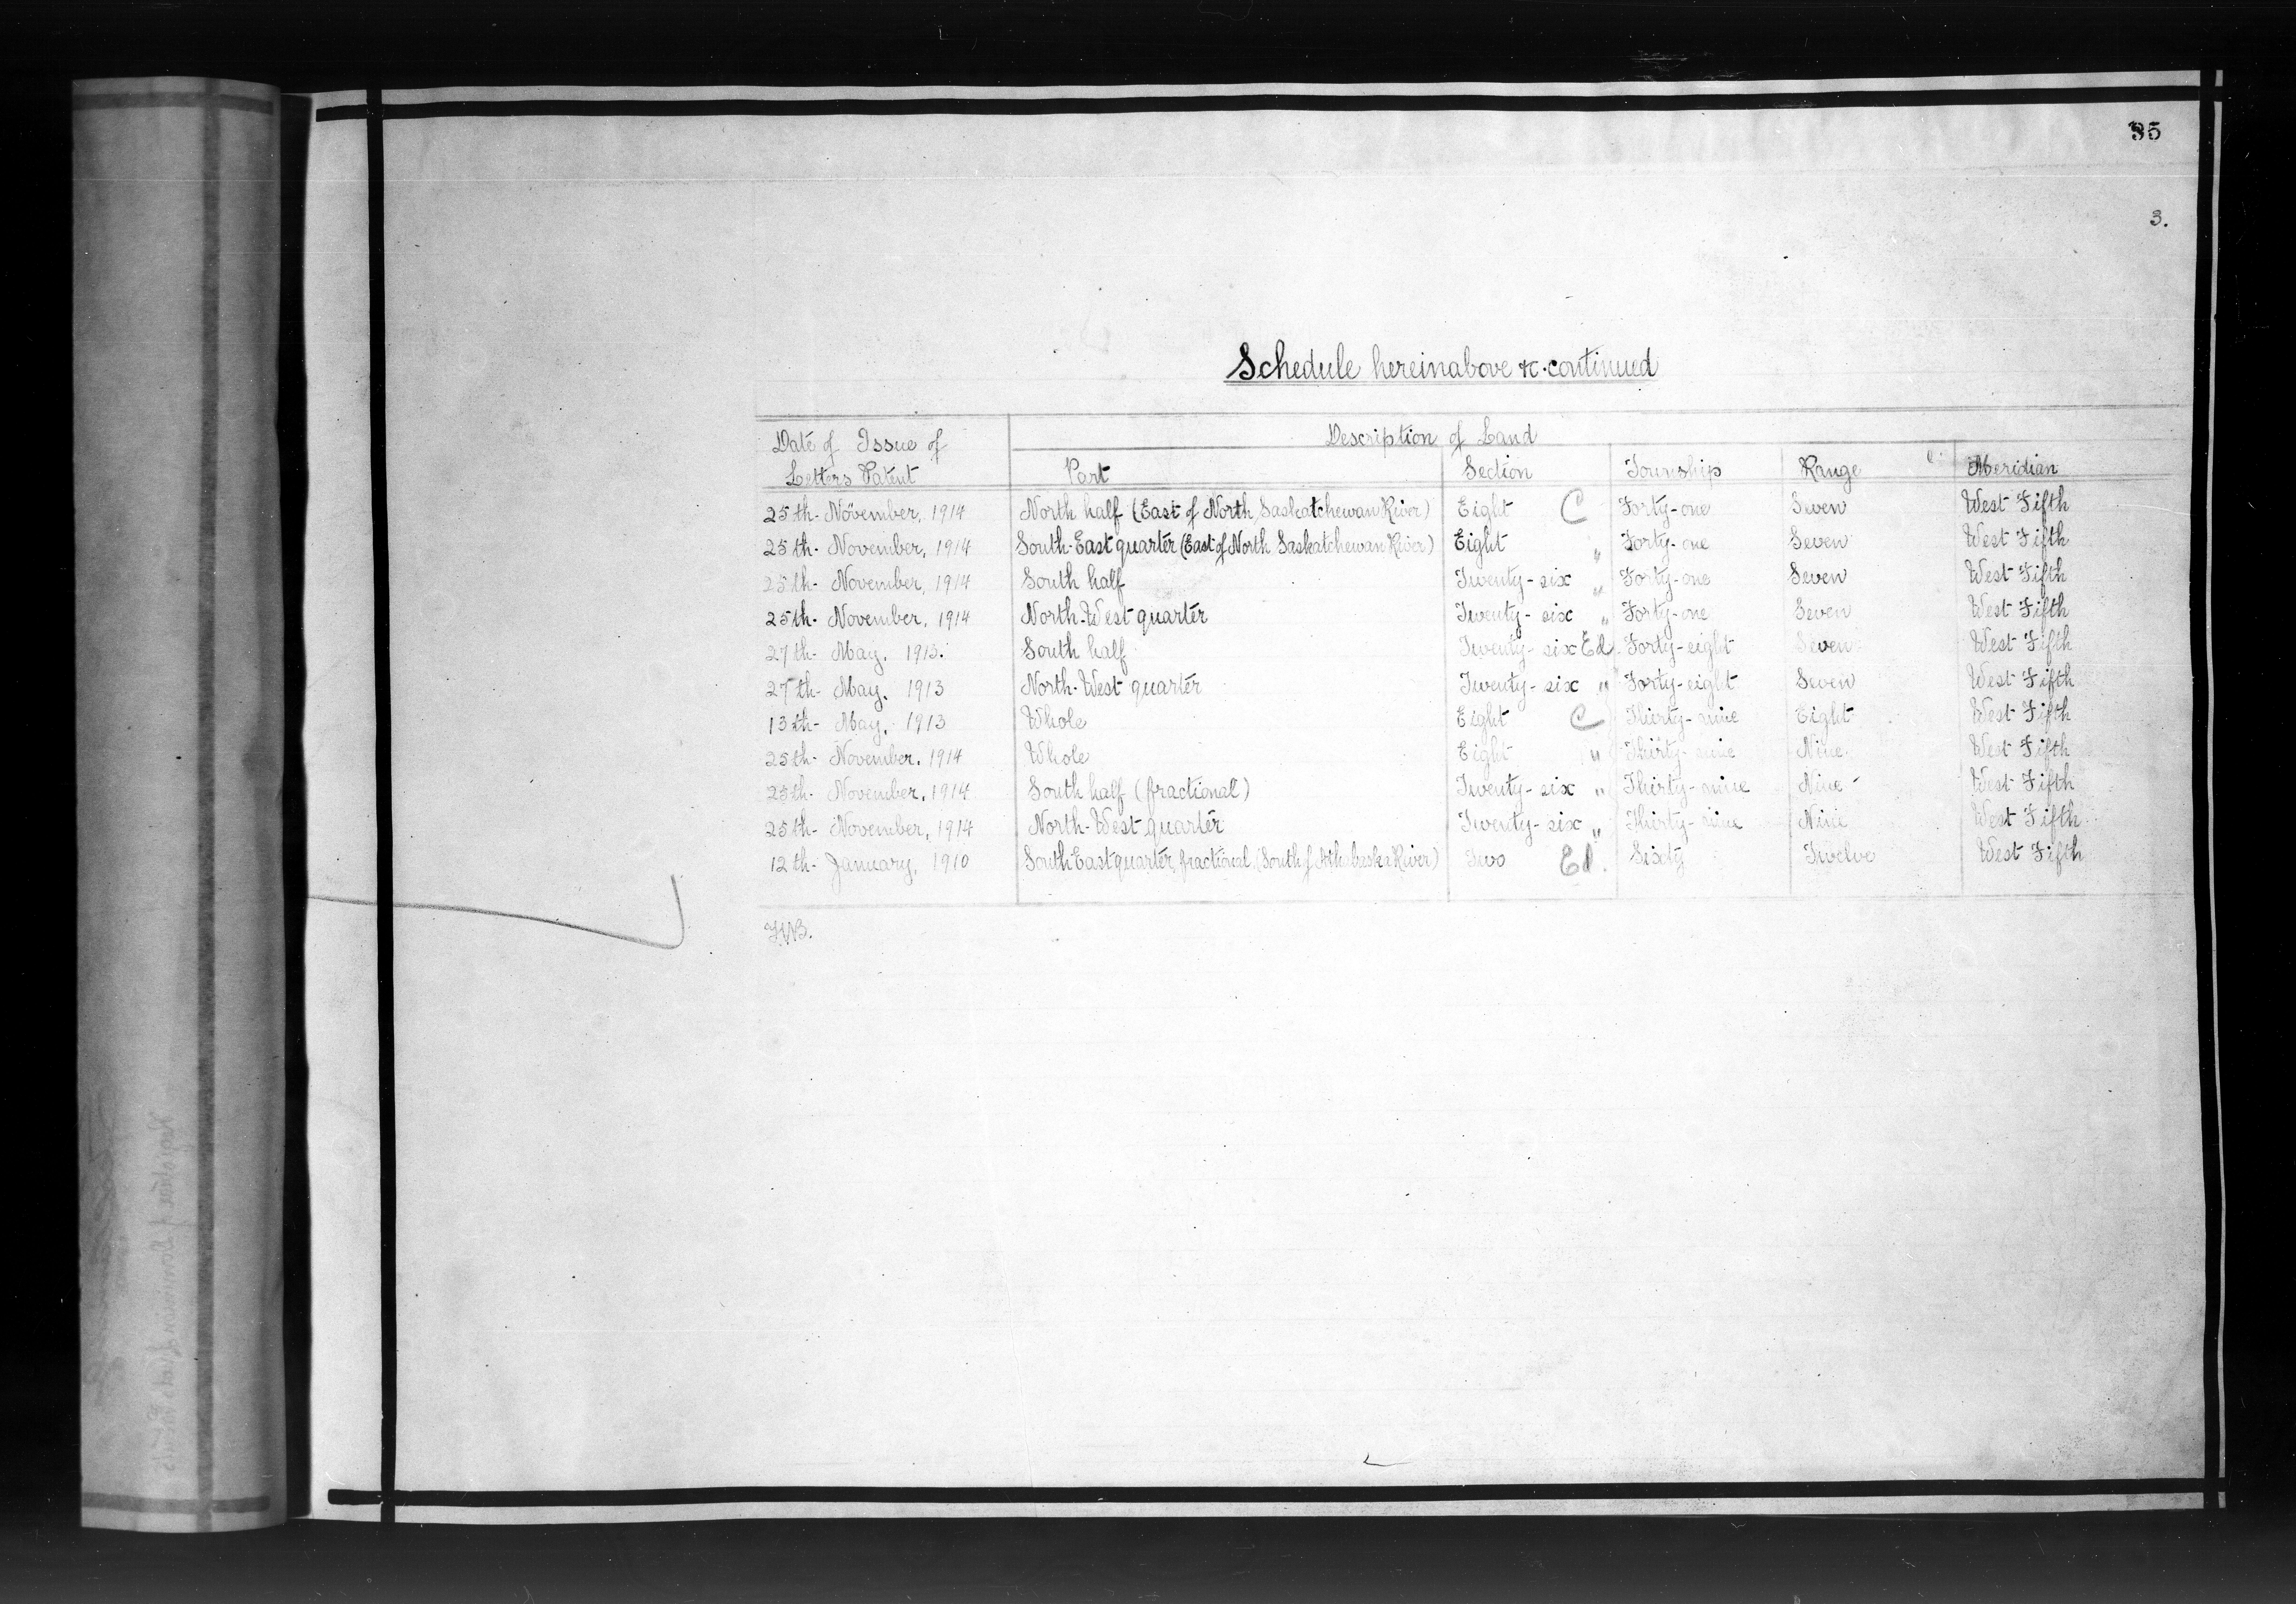 35
3.
Schedule hereinabove &c. continued
Date of Issue of Letters Patent
Description of Land
Part Section Township Range Meridian
25th. November, 1914 North half (East of North Saskatchewan River) Eight C Forty-one Seven West Fifth
25th. November, 1914 South-East quarter (East of North Saskatchewan River) Eight " Forty-one Seven West Fifth
25th. November, 1914 South half Twenty-six " Forty-one Seven West Fifth
25th. November, 1914 North-West quarter Twenty-six " Forty-one Seven West Fifth
27th. May, 1913. South half Twenty-six Ed. Forty-eight Seven West Fifth
27th. May, 1913 North-West quarter Twenty-six " Forty-eight Seven West Fifth
13th. May, 1913 Whole Eight C Thirty-nine Eight West Fifth
25th. November, 1914 Whole Eight " Thirty-nine Nine West Fifth
25th. November, 1914 South half (fractional) Twenty-six " Thirty-nine Nine West Fifth
25th. November, 1914 North-West quarter Twenty-six " Thirty-nine Nine West Fifth
12th. January, 1910 South East quarter, fractional, (South of Athabaska River) Two Ed. Sixty Twelve West Fifth